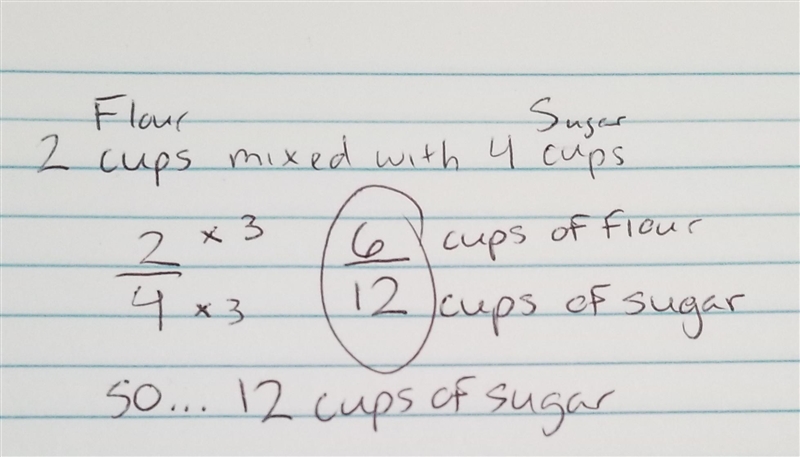 Flour Sugar
2 cups mixed with 4 cups
2 x 3 6 cups of flour
4 x 3 12 cups of sugar
so... 12 cups of sugar